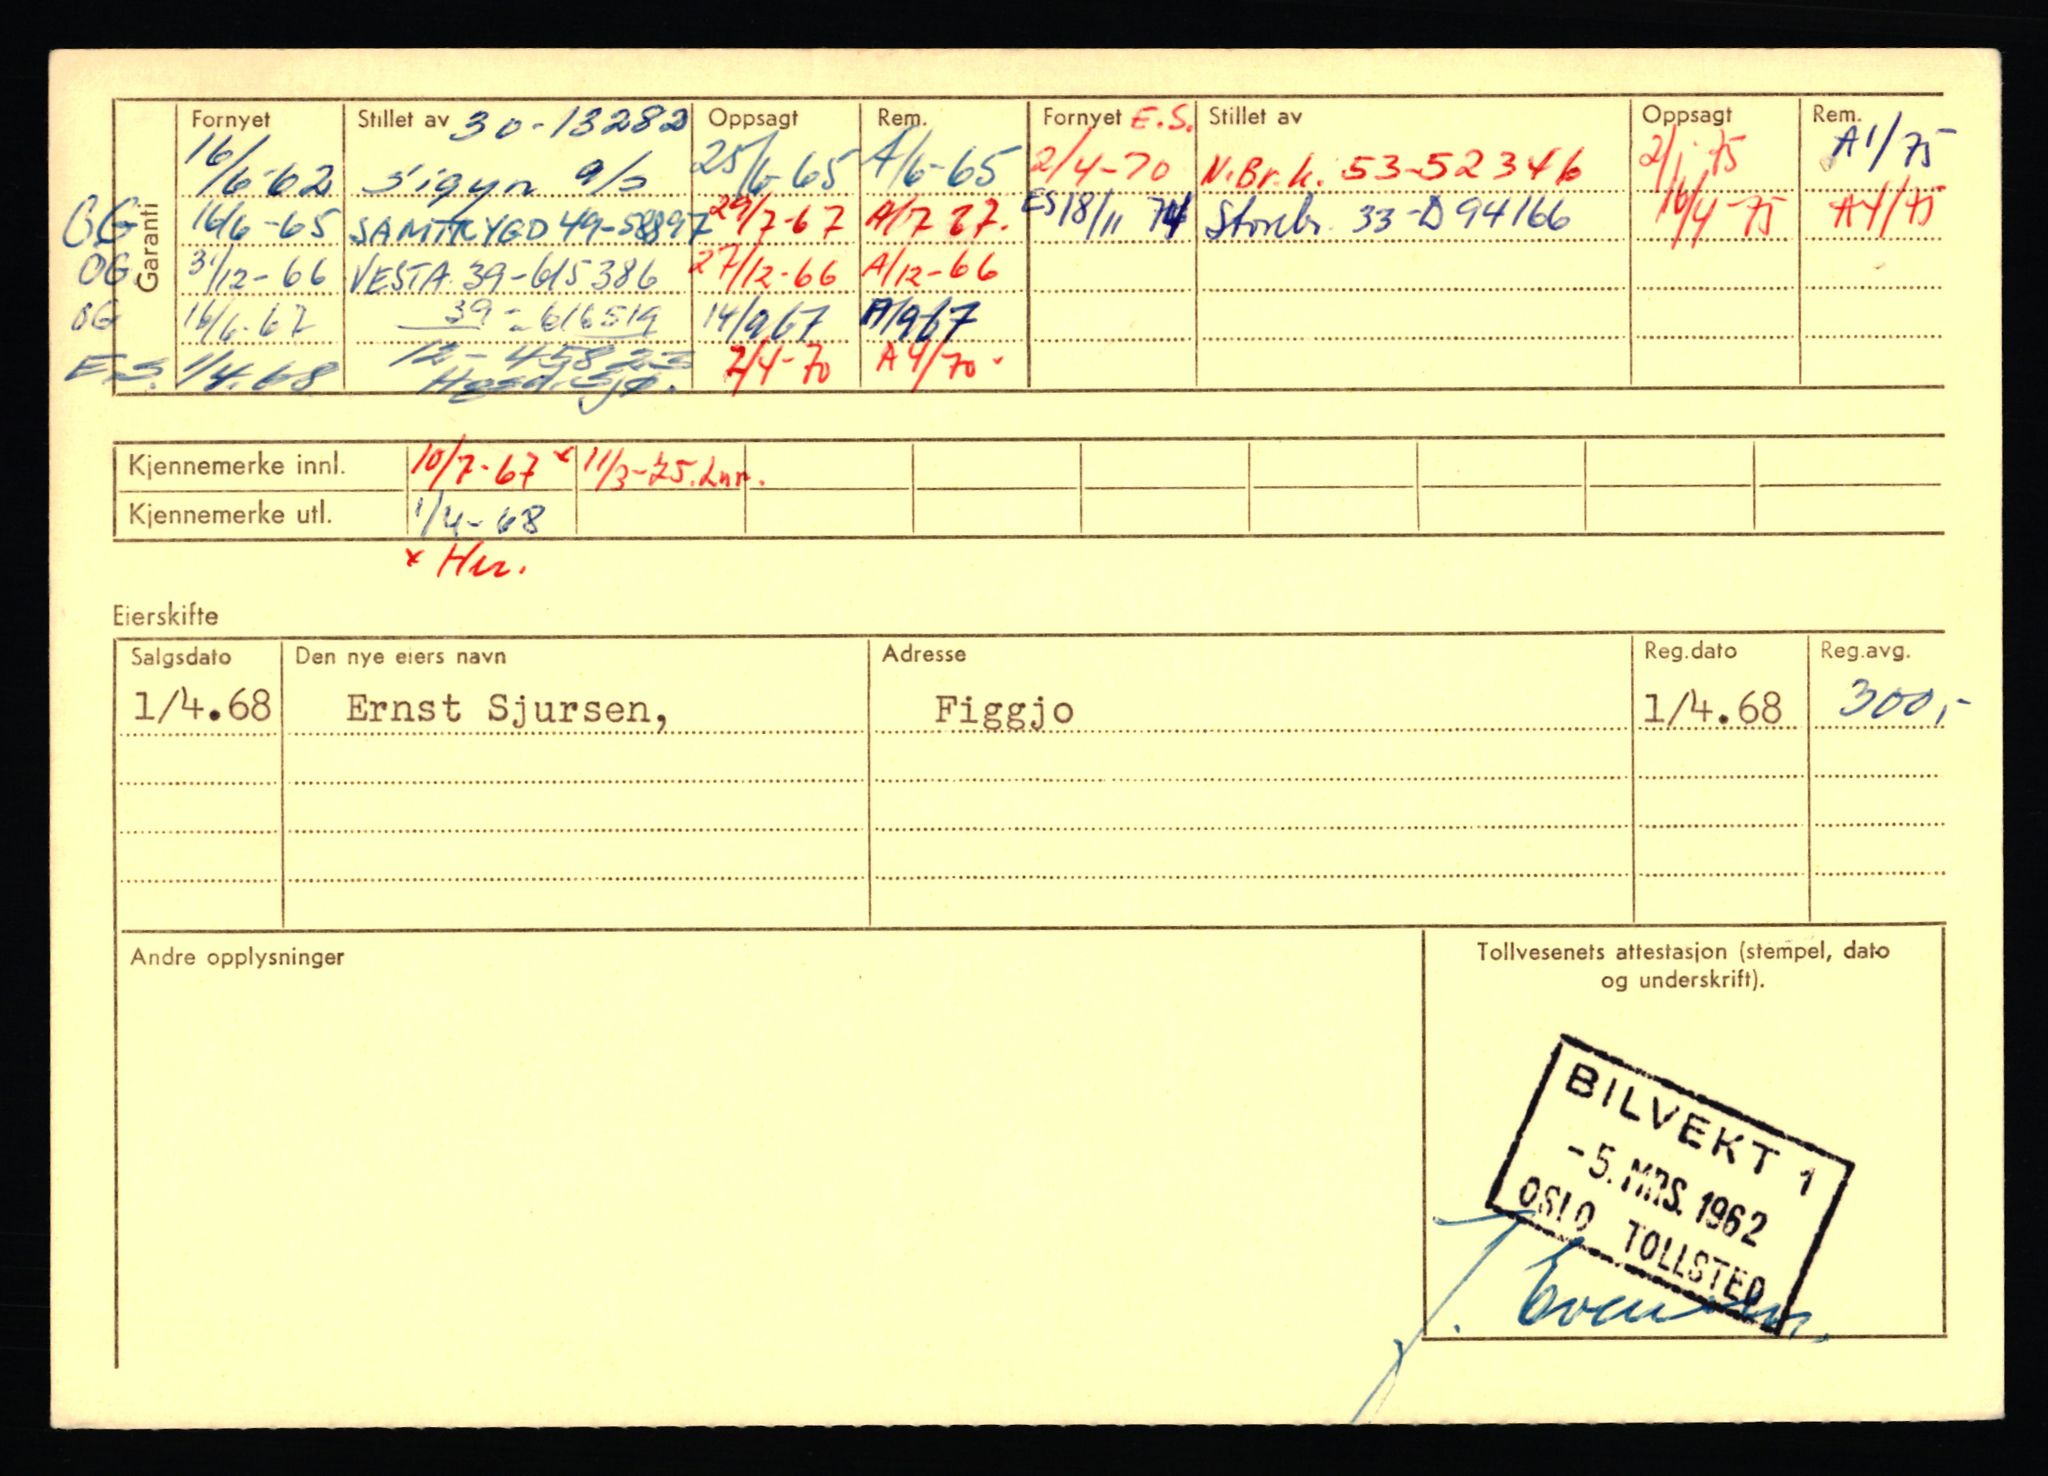 Garanti
Fornyet Stillet av 30-13282 Oppsagt Rem. Fornyet E.S. Stillet av Oppsagt Rem.
16/6-62 Sigyn a/s 25/6-65 A/6-65 2/4-70 N.Br.k. 53-52346 2/1-75 A1/75
OG 16/6-65 SAMTRYGD 49-58897 29/7-67 A/7 67. ES 18/11 74 Storebr. 33-D94166 16/4-75 A4/75
OG 31/12-66 VESTA 39-615386 27/12-66 A/12-66
OG 16/6-67 39-616519 14/9 67 A/9 67
E.S. 1/4.68 12-45823 2/4-70 A4/70.
Kjennemerke innl. 10/7-67 x 11/3-75. Lnn.
Kjennemerke utl. 1/4-68
x Her.
Eierskifte
Salgsdato Den nye eiers navn Adresse Reg.dato Reg.avg.
1/4.68 Ernst Sjursen, Figgjo 1/4.68 300,-
Andre opplysninger
Tollvesenets attestasjon (stempel, dato
og underskrift).
BILVEKT 1
-5. MRS. 1962
OSLO TOLLSTED